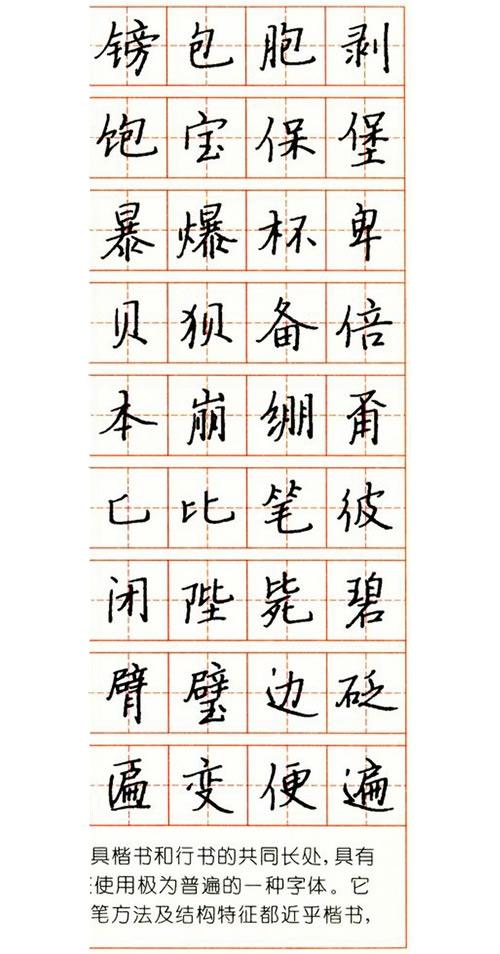 镑包胞剥
饱宝保堡
暴爆杯卑
贝狈备倍
本崩绷甭
匕比笔彼
闭陛毙碧
臂璧边砭
匾变便遍
具楷书和行书的共同长处,具有
使用极为普遍的一种字体。它
笔方法及结构特征都近乎楷书,